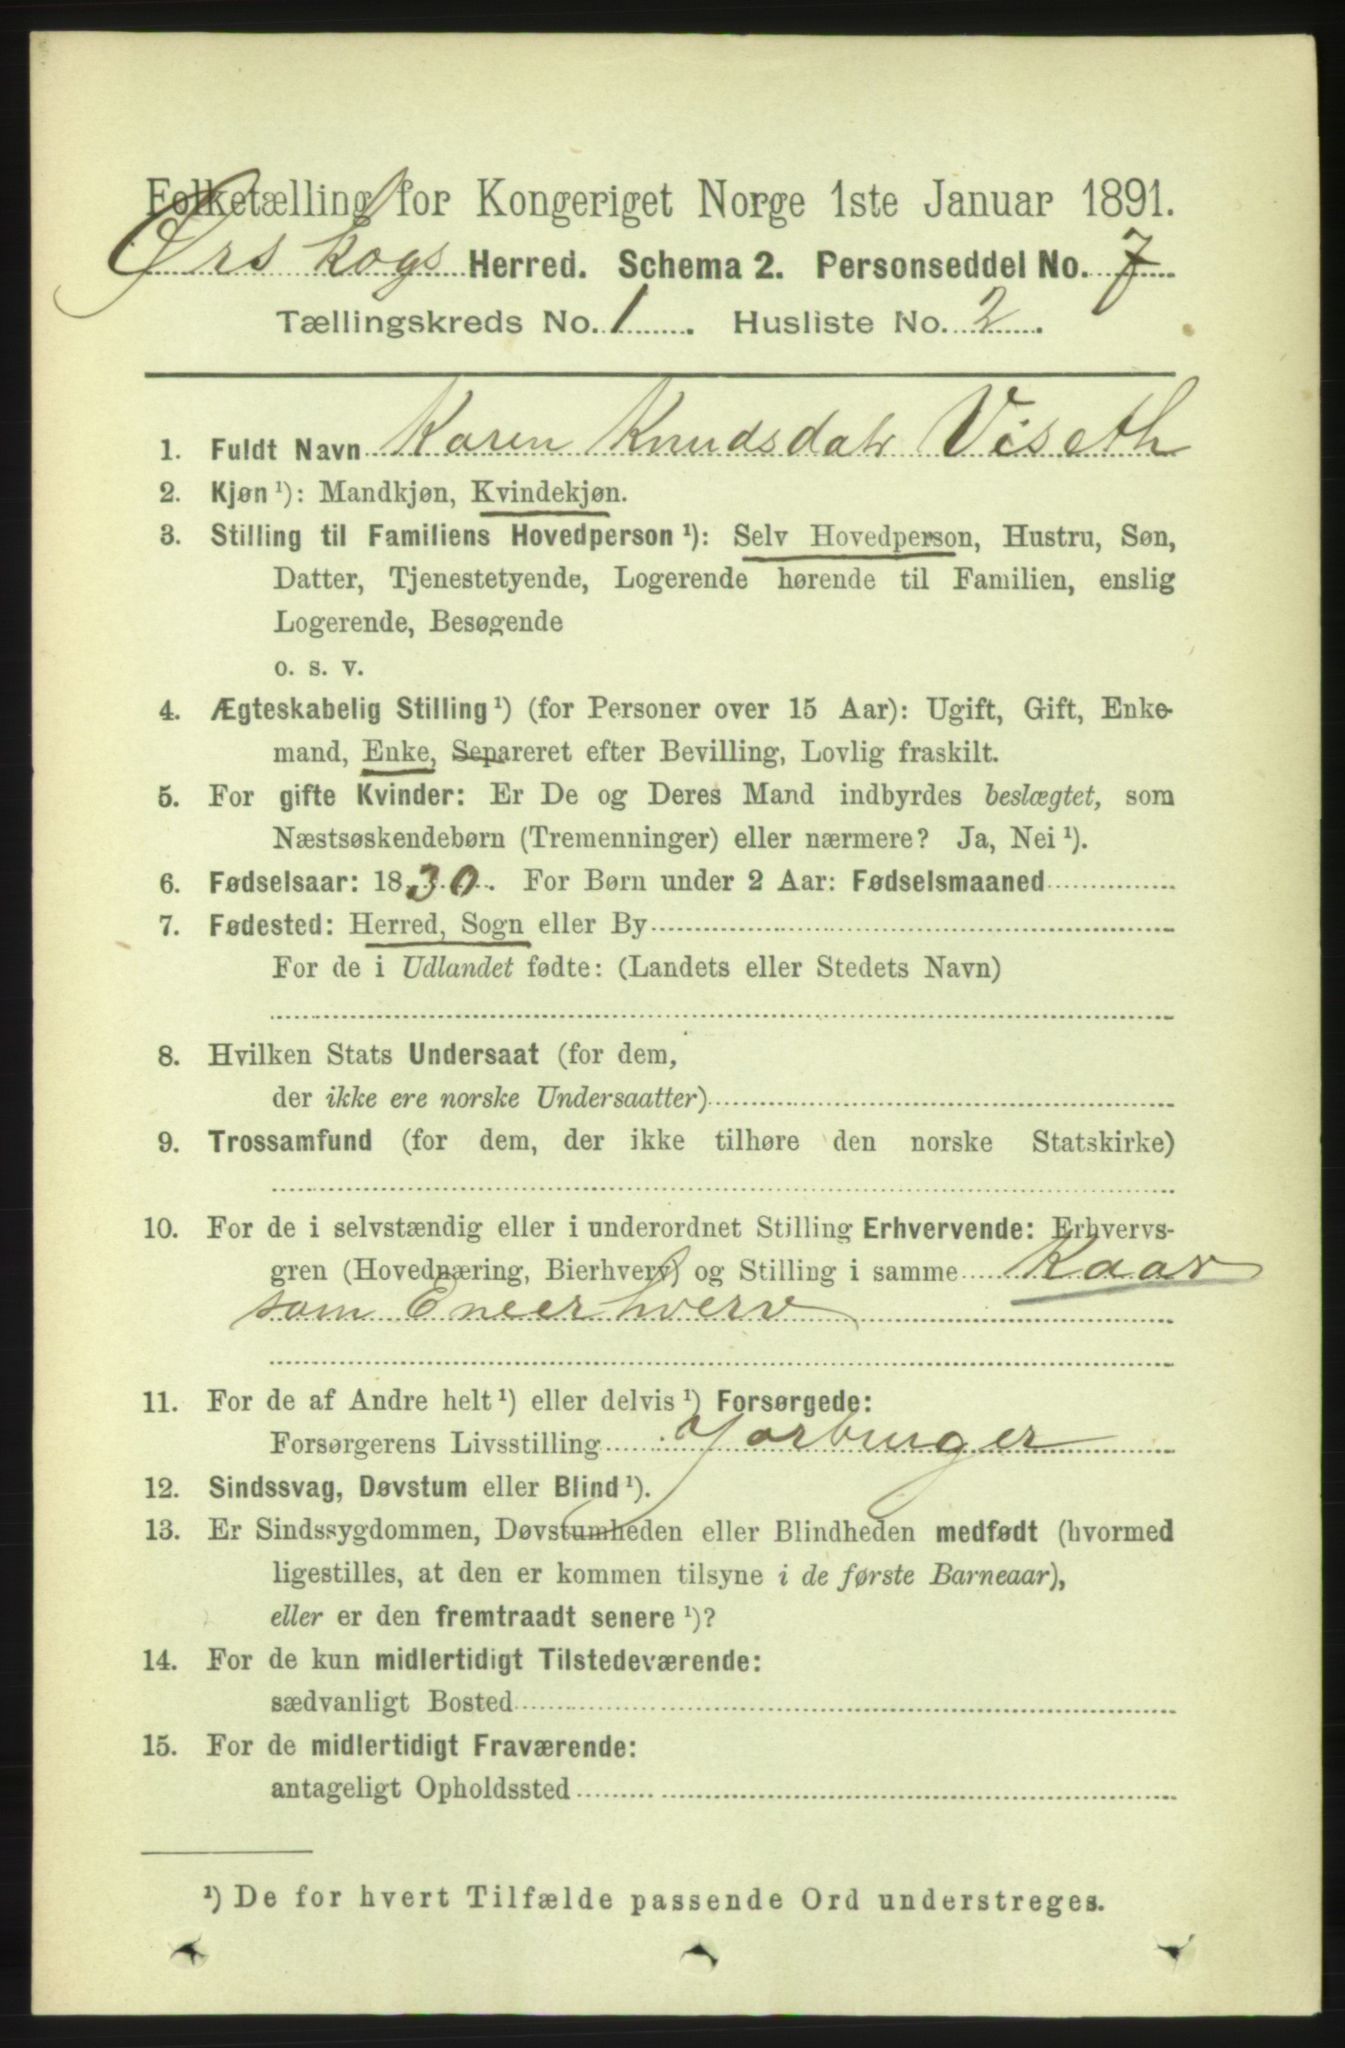 Folketælling for Kongeriget Norge 1ste Januar 1891.
Ørskogs Herred. Schema 2. Personseddel No. 7
Tællingskreds No. 1. Husliste No. 2.
1. Fuldt Navn Karen Knudsdatr Viseth
2. Kjøn ¹): Mandkjøn, Kvindekjøn.
3. Stilling til Familiens Hovedperson ¹): Selv Hovedperson, Hustru, Søn,
Datter, Tjenestetyende, Logerende hørende til Familien, enslig
Logerende, Besøgende
o. s. v.
4. Ægteskabelig Stilling ¹) (for Personer over 15 Aar): Ugift, Gift, Enke-
mand, Enke, Separeret efter Bevilling, Lovlig fraskilt.
5. For gifte Kvinder: Er De og Deres Mand indbyrdes beslægtet, som
Næstsøskendebørn (Tremenninger) eller nærmere? Ja, Nei ¹).
6. Fødselsaar: 1830. For Børn under 2 Aar: Fødselsmaaned
7. Fødested: Herred, Sogn eller By
For de i Udlandet fødte: (Landets eller Stedets Navn)
8. Hvilken Stats Undersaat (for dem,
der ikke ere norske Undersaatter)
9. Trossamfund (for dem, der ikke tilhøre den norske Statskirke)
10. For de i selvstændig eller i underordnet Stilling Erhvervende: Erhvervs-
gren (Hovednæring, Bierhverv) og Stilling i samme Kaar
som Eneerhverv
11. For de af Andre helt ¹) eller delvis ¹) Forsørgede:
Forsørgerens Livsstilling Jorbruger
12. Sindssvag, Døvstum eller Blind ¹).
13. Er Sindssygdommen, Døvstumheden eller Blindheden medfødt (hvormed
ligestilles, at den er kommen tilsyne i de første Barneaar),
eller er den fremtraadt senere ¹)?
14. For de kun midlertidigt Tilstedeværende:
sædvanligt Bosted
15. For de midlertidigt Fraværende:
antageligt Opholdssted
¹) De for hvert Tilfælde passende Ord understreges.